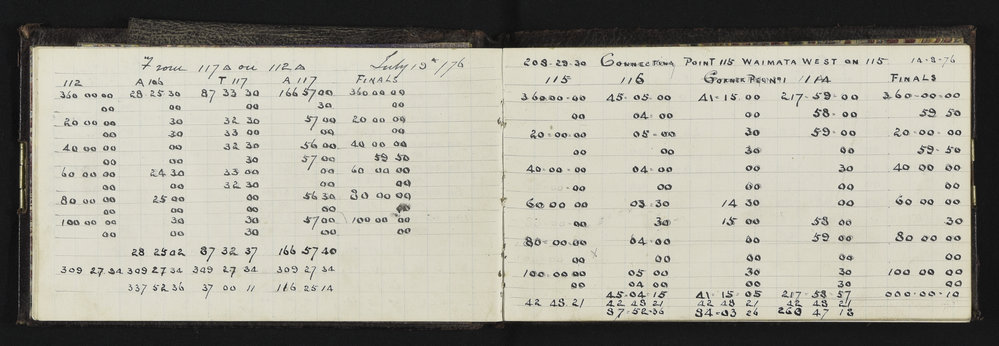 From 117△ on 112△ July 13th /76
112 A 106 T 117 A 117 FINALS
360 00 00 28 25 30 87 33 30 166 57 00 360 00 00
00 00 00 30 00
20 00 00 30 32 30 57 00 20 00 00
00 30 33 00 00 00
40 00 00 00 32 30 56 00 40 00 00
00 00 30 57 00 59 50
60 00 00 24 30 33 00 00 60 00 00
00 00 32 30 00 00
80 00 00 25 00 00 56 30 80 00 00
00 00 00 00
100 00 00 30 30 57 00 100 00 00
00 00 30 00 00
28 25 02 87 32 37 166 57 40
309 27 34 309 27 34 309 27 34 309 27 34
337 52 36 37 00 11 116 25 14
208-29-30 CONNECTING POINT 115 WAIMATA WEST ON 115 14-3-76
115 116 CORNER PEG No 1 117A FINALS
360-00-00 45-05-00 41-15-00 217-59-00 360-00-00
00 04-00 00 58-00 59 50
20-00-00 05-00 30 59-00 20-00-00
00 00 30 00 59-50
40-00-00 04-00 00 30 40 00 00
00 00 00 00 00
60 00 00 03 30 14 30 00 60 00 00
00 30 15 00 58 00 30
80-00-00 04-00 00 59 00 80 00 00
00 00 00 00 00
100-00-00 05 00 30 30 100 00 00
00 04 00 00 00 00
45-04-15 41-15-05 217-58-57 000-00-10
42 48 21 42 48 21 42 48 21 42 48 21
87-52-36 84-03 26 260 47 18